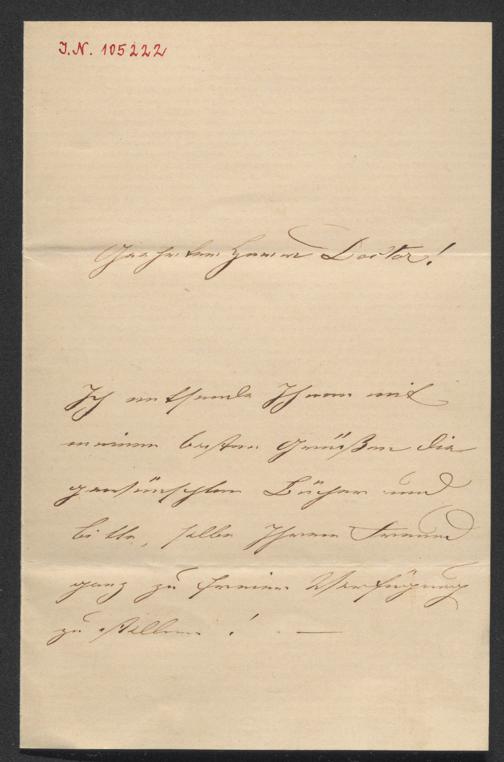 J.N. 105222
Geehrter Herr Doctor!
Ich entsende Ihnen mit
meinen besten Grüßen die
gewünschten Bücher und
bitte, selbe Ihrem Freund
ganz zu freier Verfügung
zu stellen! —